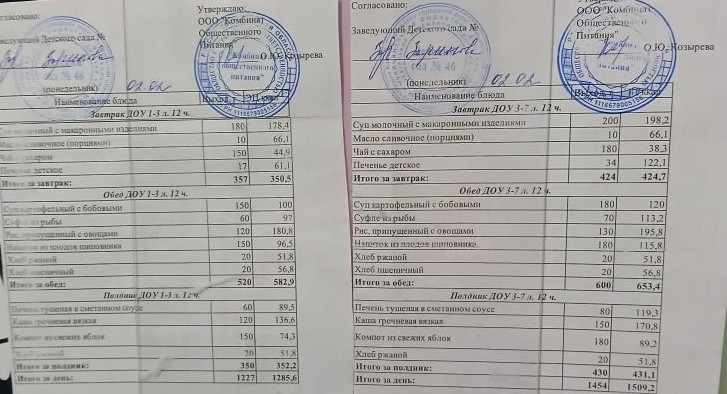 Согласовано:
Утверждаю:
ООО "Комбинат
Заведующий Детского сада №
Общественного
Питания"
О.Ю.Козырева
сад № 46
общественного
питания"
(понедельник) 02.02
Наименование блюда Выход, г ЭЦ, ккал
Завтрак ДОУ 1-3 л. 12 ч.
Суп молочный с макаронными изделиями 180 178,4
Масло сливочное (порциями) 10 66,1
Чай с сахаром 150 44,9
Печенье детское 17 61,1
Итого за завтрак: 357 350,5
Обед ДОУ 1-3 л. 12 ч.
Суп картофельный с бобовыми 150 100
Суфле из рыбы 60 97
Рис, припущенный с овощами 120 180,8
Напиток из плодов шиповника 150 96,5
Хлеб ржаной 20 51,8
Хлеб пшеничный 20 56,8
Итого за обед: 520 582,9
Полдник ДОУ 1-3 л. 12ч.
Печень тушеная в сметанном соусе 60 89,5
Каша гречневая вязкая 120 136,6
Компот из свежих яблок 150 74,3
Хлеб ржаной 20 51,8
Итого за полдник: 350 352,2
Итого за день: 1227 1285,6
Согласовано:
Утверждаю:
ООО "Комбинат
Общественного
Заведующий Детского сада №
Питания"
О.Ю.Козырева
сад № 46
питания"
(понедельник) 02.02
Наименование блюда Выход, г ЭЦ, ккал
Завтрак ДОУ 3-7 л. 12 ч.
Суп молочный с макаронными изделиями 200 198,2
Масло сливочное (порциями) 10 66,1
Чай с сахаром 180 38,3
Печенье детское 34 122,1
Итого за завтрак: 424 424,7
Обед ДОУ 3-7 л. 12 ч.
Суп картофельный с бобовыми 180 120
Суфле из рыбы 70 113,2
Рис, припущенный с овощами 130 195,8
Напиток из плодов шиповника 180 115,8
Хлеб ржаной 20 51,8
Хлеб пшеничный 20 56,8
Итого за обед: 600 653,4
Полдник ДОУ 3-7 л. 12 ч.
Печень тушеная в сметанном соусе 80 119,3
Каша гречневая вязкая 150 170,8
Компот из свежих яблок 180 89,2
Хлеб ржаной 20 51,8
Итого за полдник: 430 431,1
Итого за день: 1454 1509,2